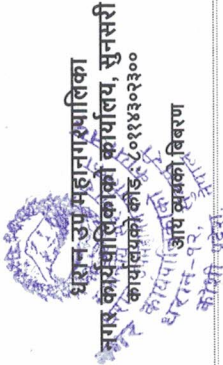 धरान उप महानगरपालिका
नगर कार्यपालिकाको कार्यालय, सुनसरी
कार्यालयको कोड : ८०११४३०२३००
आय व्ययको विवरण
धरान १२,